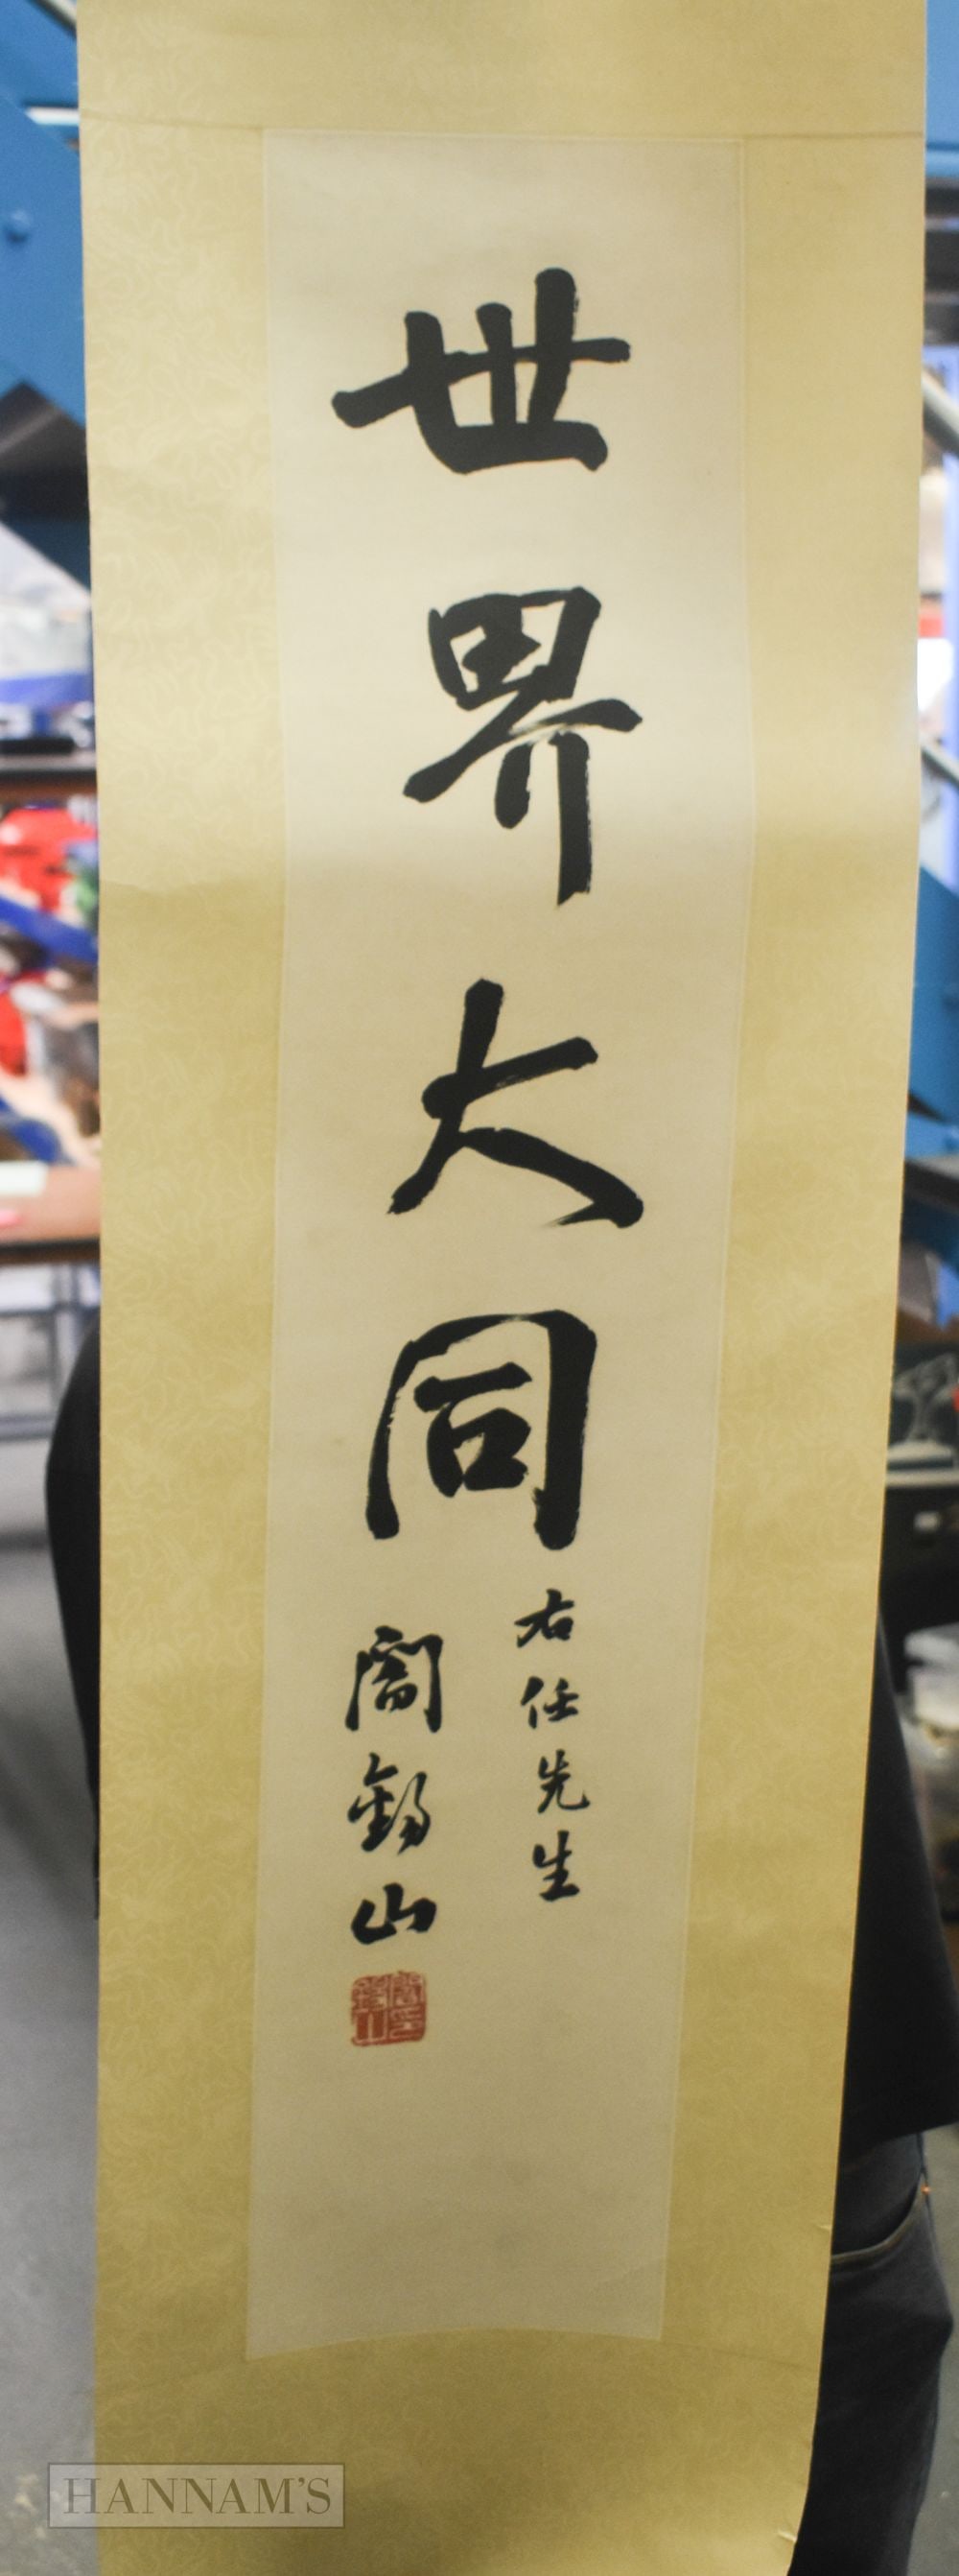 世界大同
右任先生
閻錫山
HANNAM'S